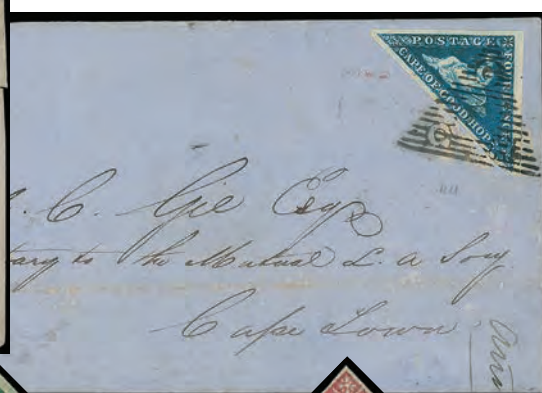 POSTAGE
FOUR PENCE
CAPE OF GOOD HOPE
. C. Gie Esqr
tary to the Mutual L. A Socy
Cape Town